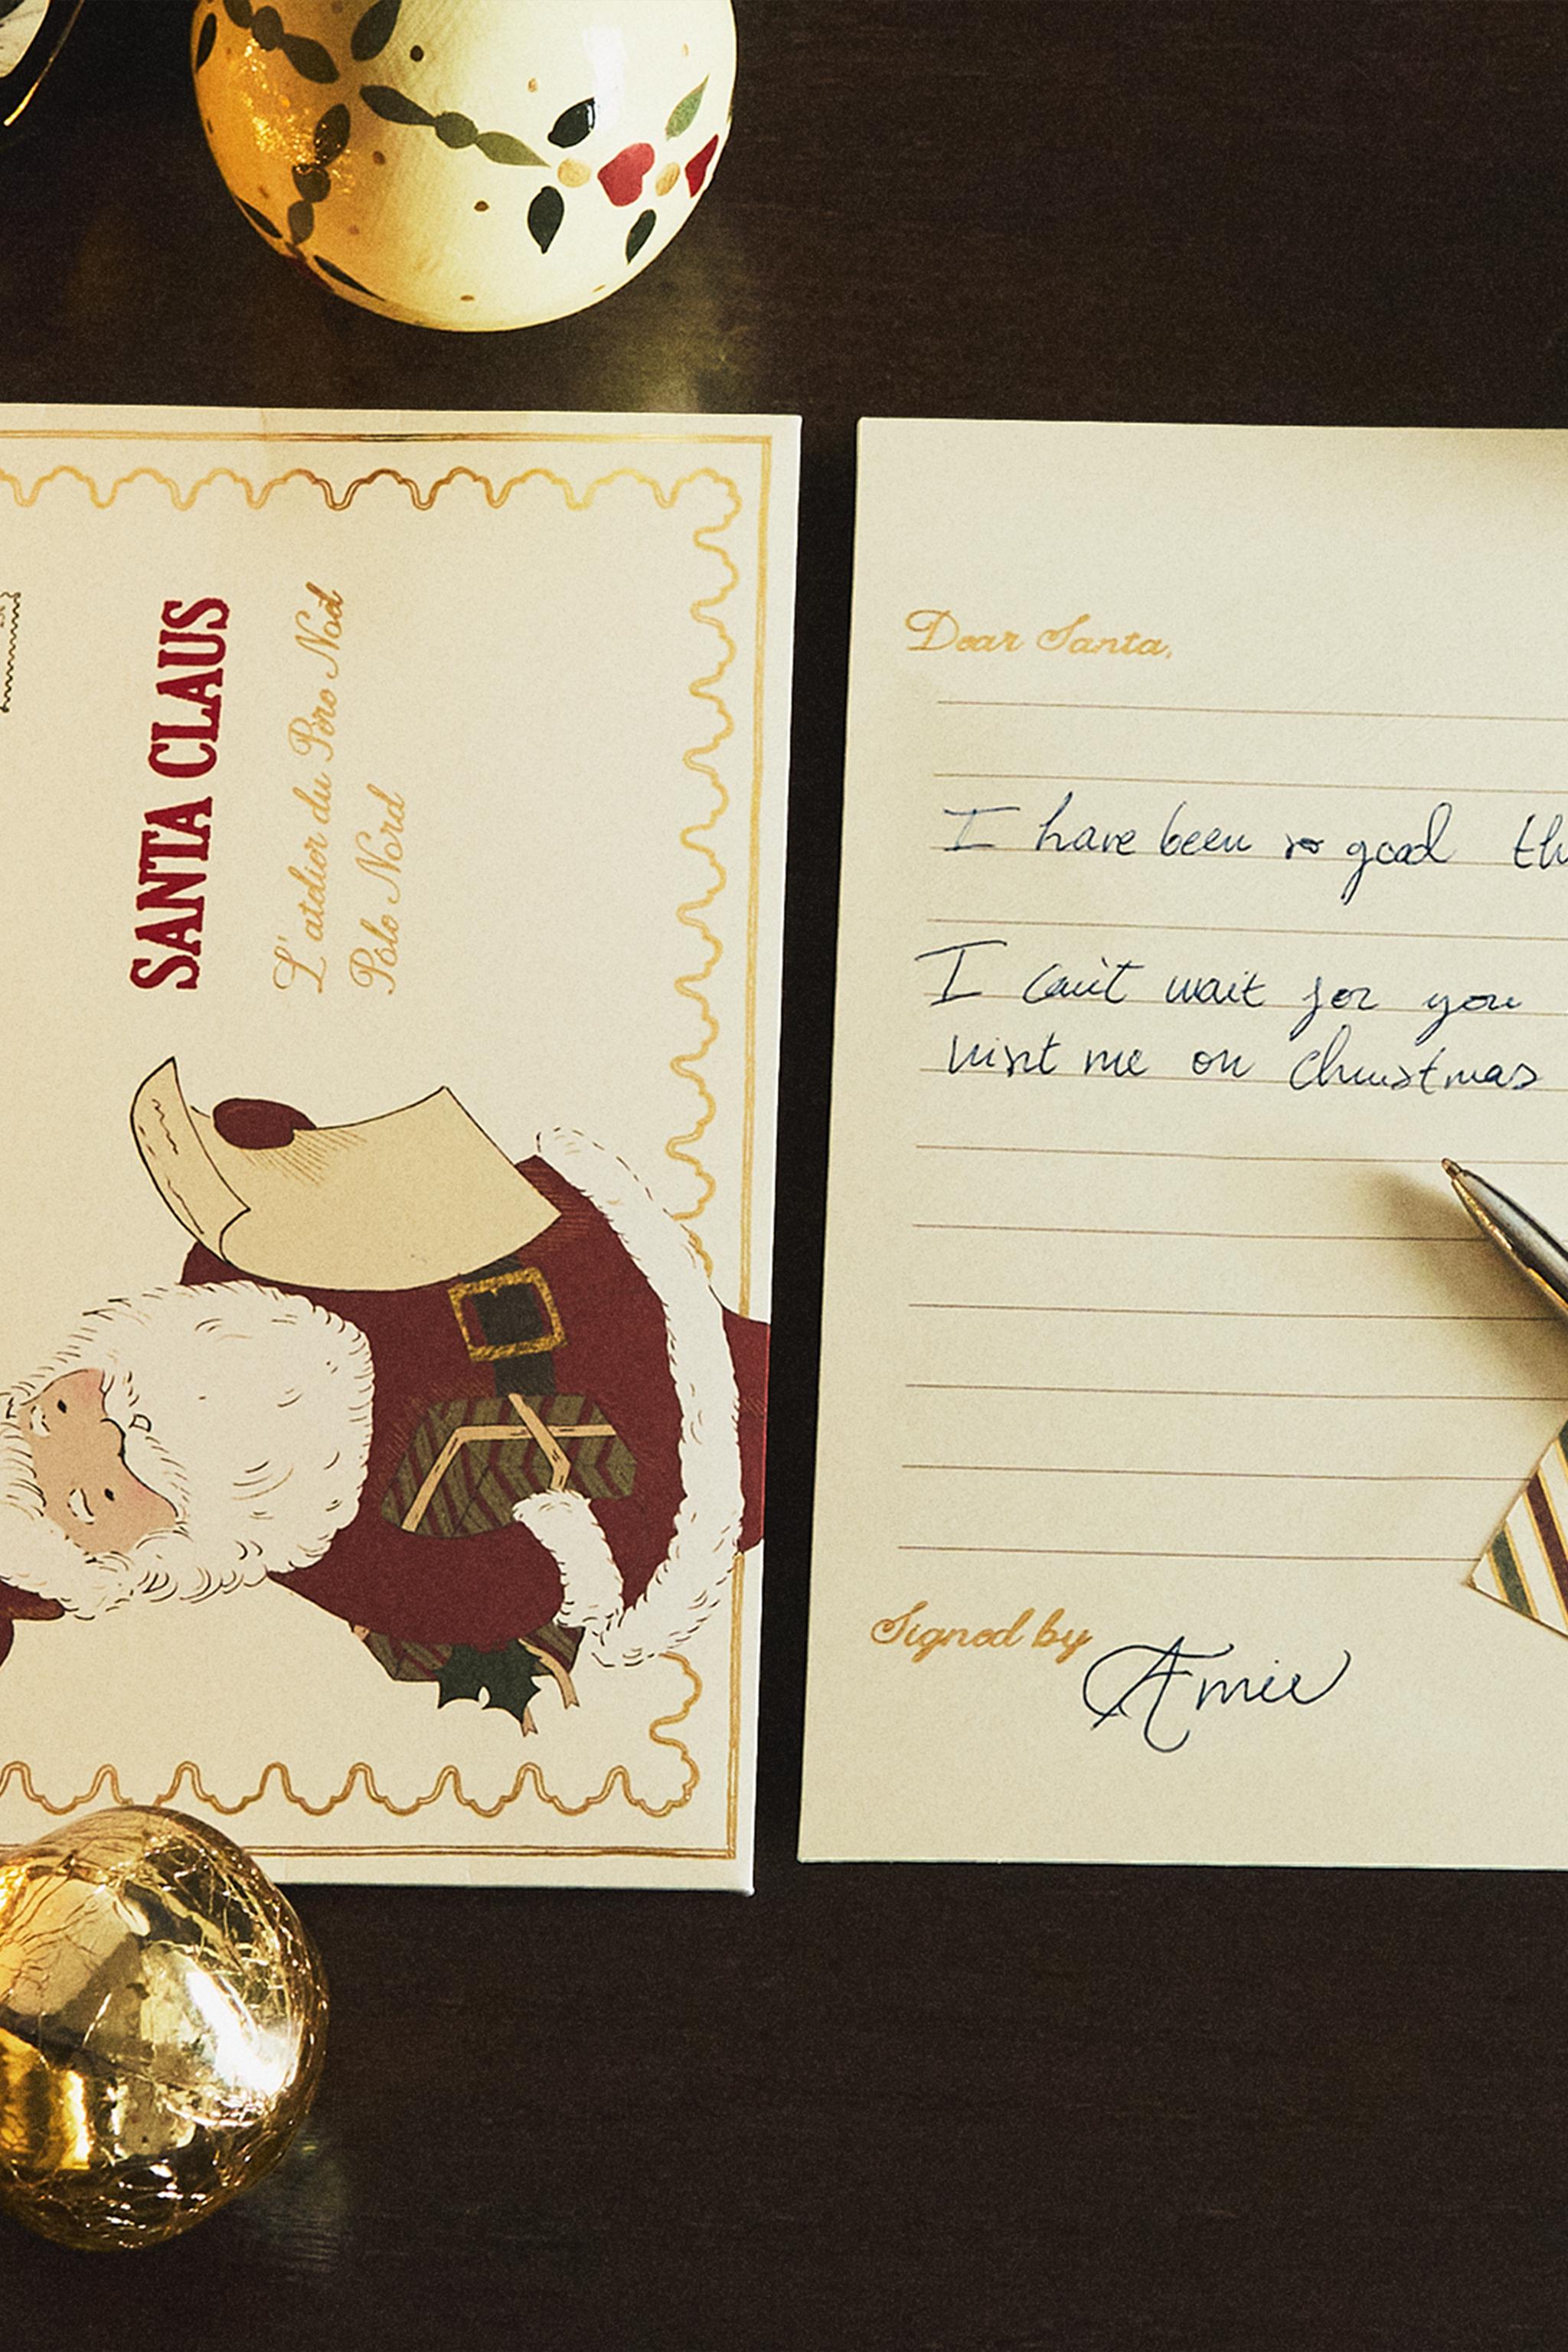 SANTA CLAUS
L'atelier du Père Noël
Pôle Nord
Dear Santa,
I have been so good th
I can't wait for you
visit me on Christmas
Signed by Amie